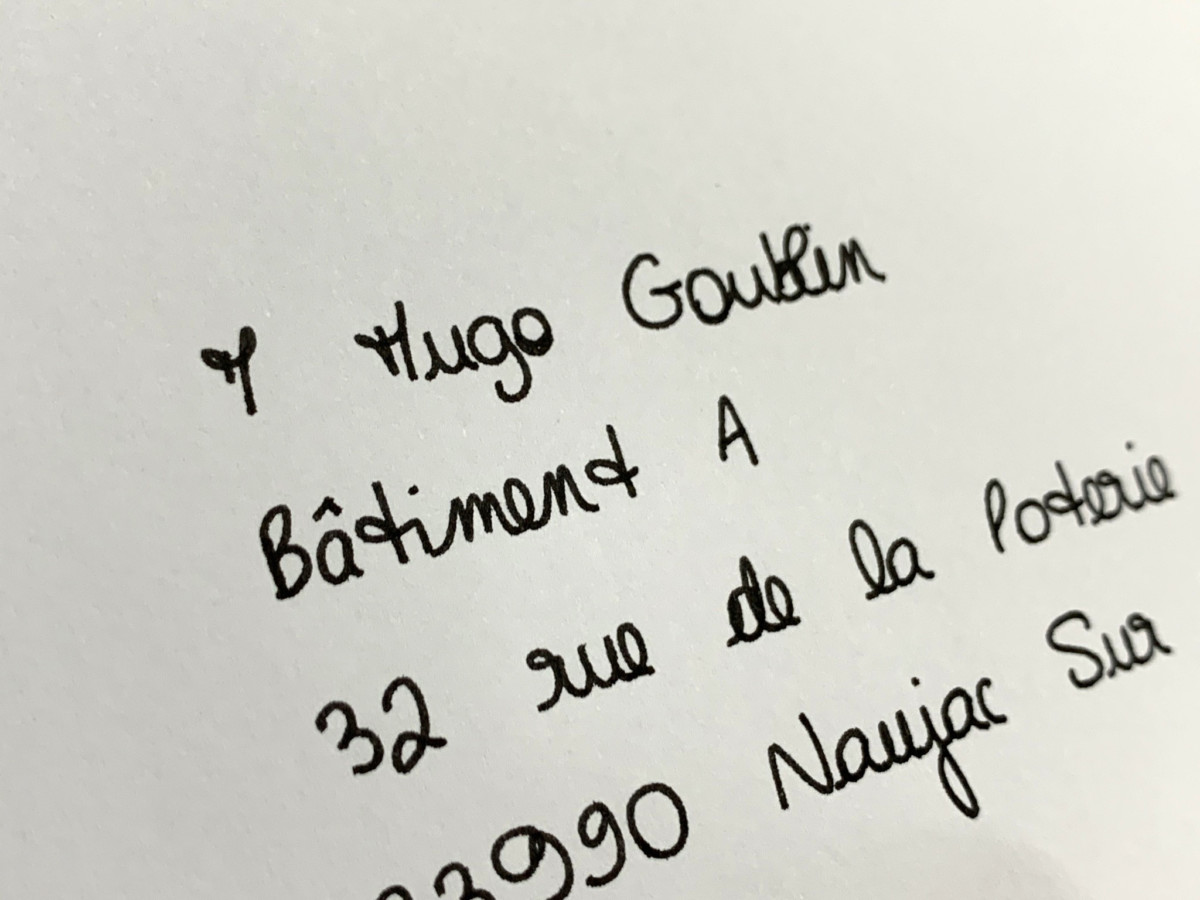 M Hugo Goublin
Bâtiment A
32 rue de la Poterie
33990 Naujac Sur